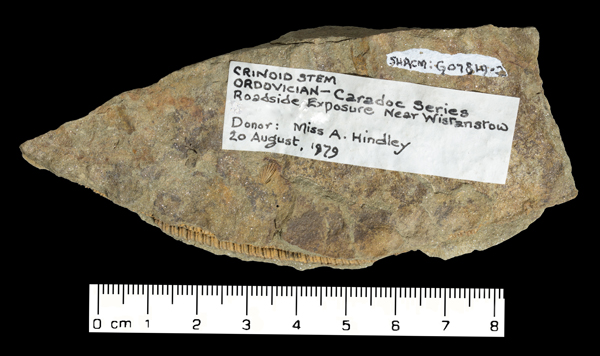 SHACM: G07819-2
CRINOID STEM
ORDOVICIAN - Caradoc Series
Roadside Exposure Near Wistanstow
Donor: Miss A. Hindley
20 August, 1979
0 cm 1 2 3 4 5 6 7 8